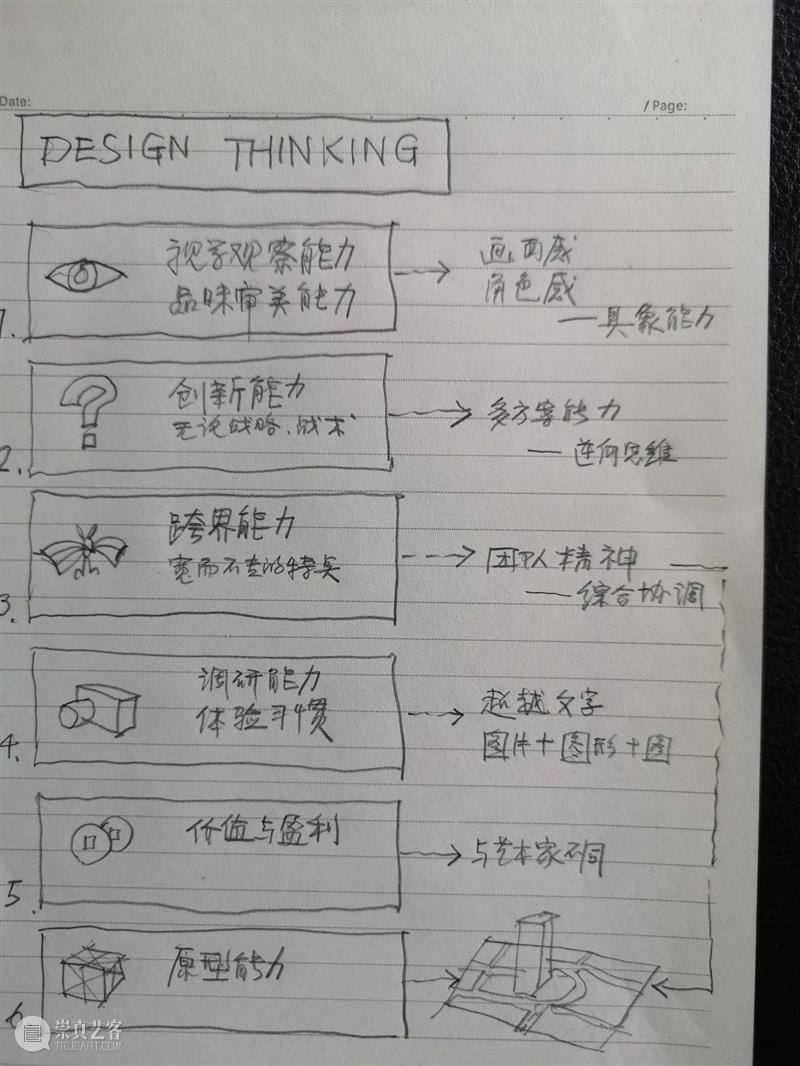 Date:
/ Page:
DESIGN THINKING
1.
视学观察能力
品味审美能力
画面感
角色感
—具象能力
2.
创新能力
无论战略、战术
多方案能力
—逆向思维
3.
跨界能力
宽而不专的特点
团队精神
—综合协调
4.
调研能力
体验习惯
超越文字
图片+图形+图
5.
价值与盈利
与艺术家不同
6
原型能力
崇真艺客
TRUEART.COM